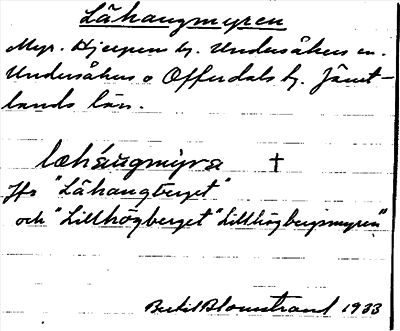 Låhaugmyren
Myr. Hjerpen by. Undersåkers sn.
Undersåkers o Offerdals tg. Jämt-
lands län.
læháugmýra †
Jfr "Låhaugberget"
och "Lillhögberget" "Lillhögbergsmyren"
Bertil Blomstrand 1933